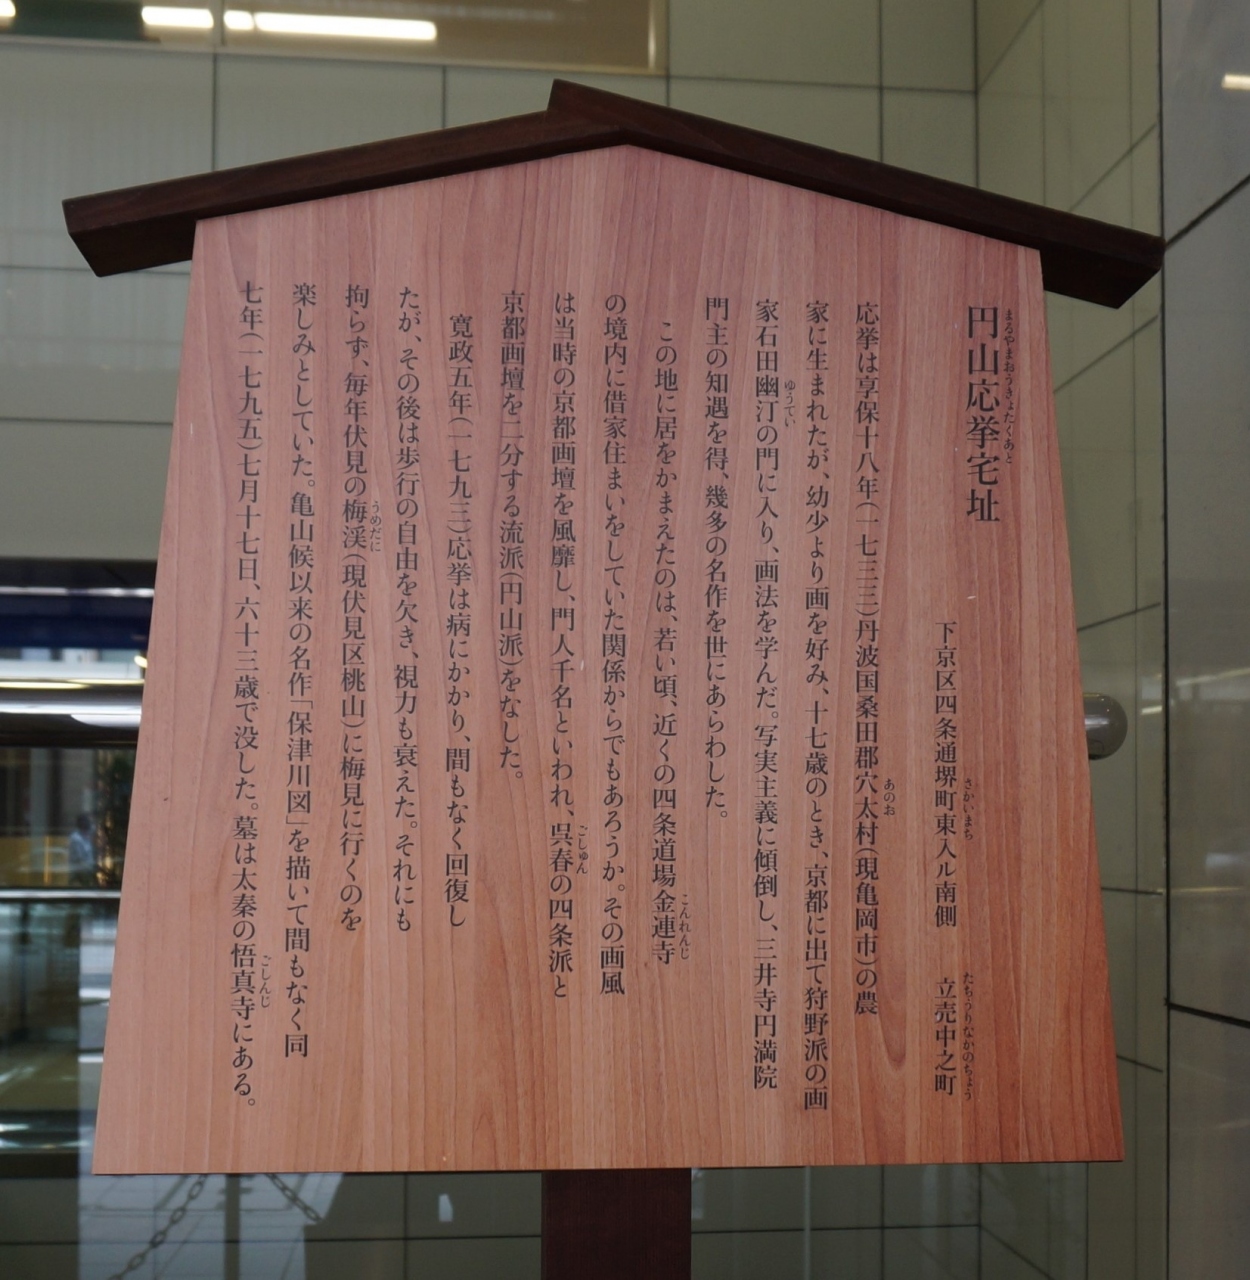 円山応挙宅址
まるやまおうきょたくあと
下京区四条通堺町東入ル南側　立売中之町
さかいまち　たちうりなかのちょう
応挙は享保十八年(一七三三)丹波国桑田郡穴太村(現亀岡市)の農
あのお
家に生まれたが、幼少より画を好み、十七歳のとき、京都に出て狩野派の画
家石田幽汀の門に入り、画法を学んだ。写実主義に傾倒し、三井寺円満院
ゆうてい
門主の知遇を得、幾多の名作を世にあらわした。
この地に居をかまえたのは、若い頃、近くの四条道場金連寺
こんれんじ
の境内に借家住まいをしていた関係からでもあろうか。その画風
は当時の京都画壇を風靡し、門人千名といわれ、呉春の四条派と
ごしゅん
京都画壇を二分する流派(円山派)をなした。
寛政五年(一七九三)応挙は病にかかり、間もなく回復し
たが、その後は歩行の自由を欠き、視力も衰えた。それにも
拘らず、毎年伏見の梅渓(現伏見区桃山)に梅見に行くのを
うめだに
楽しみとしていた。亀山候以来の名作「保津川図」を描いて間もなく同
七年(一七九五)七月十七日、六十三歳で没した。墓は太秦の悟真寺にある。
ごしんじ